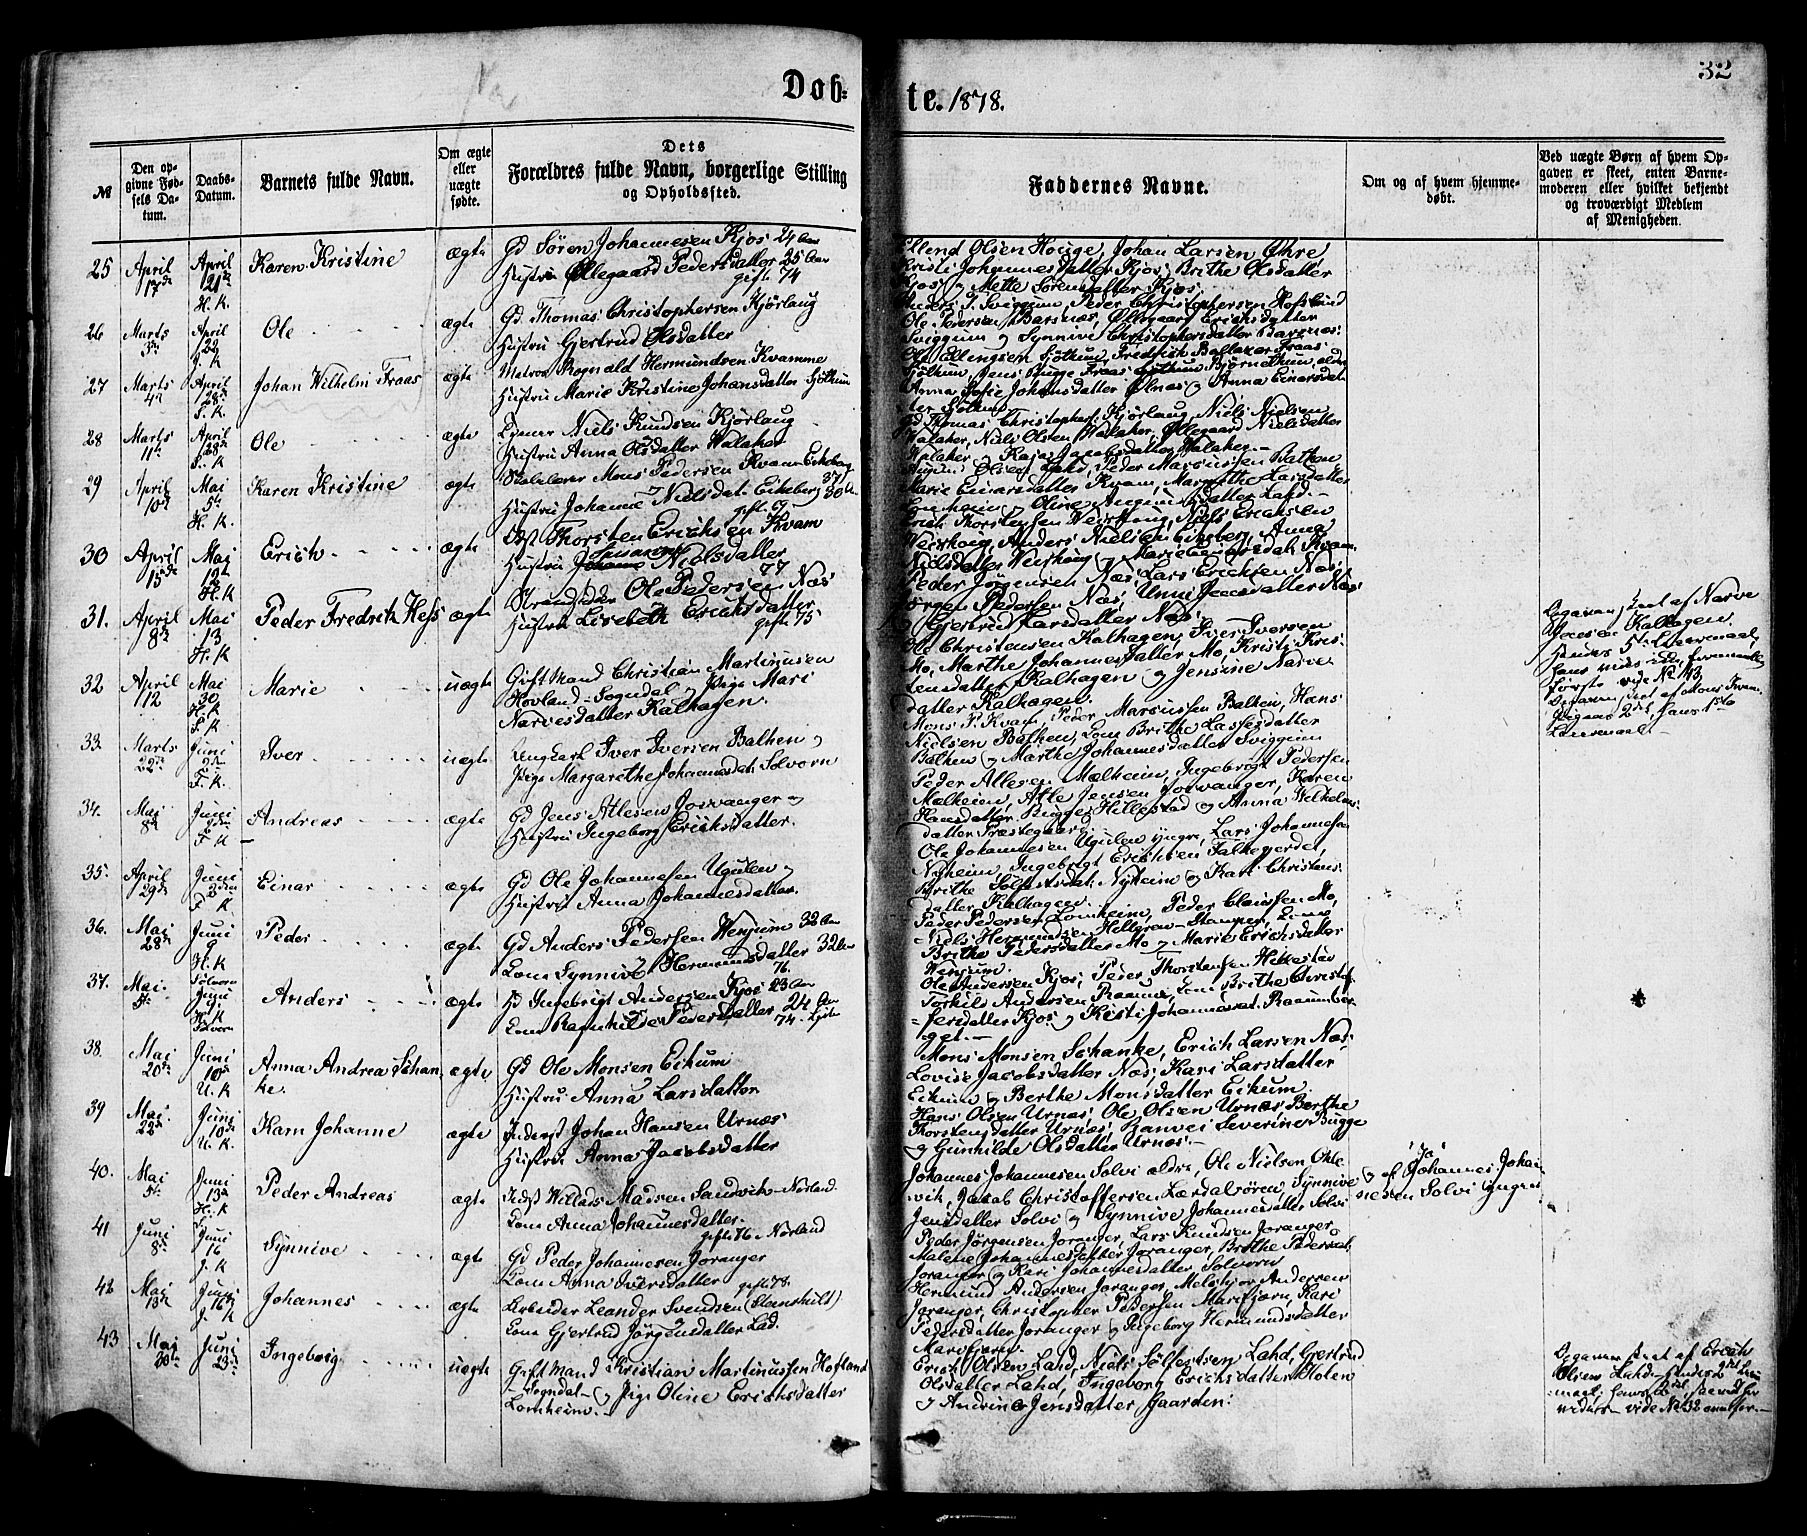 Døb-
te. 1878.
32
№
Den op-
givne Fød-
sels Da-
tum.
Daabs-
Datum.
Barnets fulde Navn.
Om ægte
eller
uægte
fødte.
Dets
Forældres fulde Navn, borgerlige Stilling
og Opholdssted.
Faddernes Navne.
Om og af hvem hjemme-
døbt.
Ved uægte Børn af hvem Op-
gaven er skeet, enten Barne-
moderen eller hvilket bekjendt
og troværdigt Medlem
af Menigheden.
25 April 17de April 21de H. K. Karen Kristine ægte
Gd Søren Johannesen Kjos 24 Aar
Hustru Øllegaard Pedersdatter 25 Aar
gift 74
Ellend Olsen Houge, Johan Larsen Øhre,
Kristi Johannesdatter Kjos, Brithe Olsdatter
Kjos og Mette Sørensdatter Kjos.
26 Marts 3de April 22 Ole ægte
Gd. Thomas Christophersen Kjørlaug
Hustru Gjertrud Olsdatter
Sviggum, Peder Christophersen Hofslund
Ole Pedersen Barsnæs, Øllegaard Erichsdatter
Sviggum og Synnive Christophersdatter Barsnæs.
27 Marts 4de April 28de S. K. Johan Wilhelm Fraas ægte
Matros Rognald Hermundsen Kvamme
Hustru Marie Kristine Johansdatter Sjøthun
Ole Ellingsen Sjøthun, Fredrick Baltazer Fraas
Sjøthun, Jens Bugge Fraas
Anna Sofie Johansdatter Ølnæs og Anna Einarsdat-
ter Sjøthun
28 Marts 11te April 28de S. K. Ole ægte
Niels Knudsen Kjørlaug
Hustru Anna Olsdatter Walaker
Gd Thomas Christophers. Kjørlaug, Niels Nielsen
Walaker, Niels Olsen Walaker, Øllegaard Nielsdatter
Walaker og Kari Jacobsdatter Walaker.
29 April 10de Mai 5te H. K. Karen Kristine ægte
Mons Pedersen Kvam Eikeberg 37
Hustru Johanne Nielsdat. Eikeberg 30
gift 67
Olsen Lahd, Peder Marcussen Balken
Marie Einarsdatter Kvam, Margrethe Larsdatter
og Oline datter Lahd.
30 April 15de Mai 12te H. K Erich ægte
Thorsten Erichsen Kvam
Hustru Johanne Nielsdatter
77
Erich Thorstensen Weirhoug, Niels Erichsen
Weirhoug, Anders Nielsen Eikeberg, Anna
Nielsdatter Weirhoug og Marie Einarsdat. Kvam.
31. April 8de Mai 13 H. K Peder Fredrik Hess ægte
Strandsidder Ole Pedersen Næs
Hustru Lisebeth Erichsdatter
gift 75
Peder Jørgensen Næs, Lars Erichsen Næs,
Jørgen Pedersen Næs, Unni datter Næs
og Gjertrud Larsdatter Næs.
32 April 12 Mai 30 H. K S. K. Marie uægte
Gift Mand Christian Martinusen
Hovland Sogndal og Pige Mari
Narvesdatter Kalhagen.
Ole Christensen Kalhagen, Iver Iversen
Mo, Marthe Johannesdatter Mo, Kristi Kris-
tensdatter Kalhagen og Jensine Narve-
datter Kalhagen.
Opgaven skeet af Narve
Kalhagen.
Hendes 5te Leiermaal,
første vide No 43
33. Marts 22de Juni 2den F. K. Iver uægte
Ungkarl Iver Iversen Balken og
Pige Margarethe Johannesdat. Solvorn
Mons P. Kvam, Peder Marcussen Balken, Hans
Nielsen Balken, Kone Brithe Lassesdatter
Balken og Marthe Johannesdatter Sviggum
Opgaven skeet af Mons Kvam.
Pigens 2det, hans 1ste
Leiermaal.
34. Mai 8de Juni 2den F. K Andreas ægte
Gd Jens Atlesen Josvanger og
Hustru Ingeborg Erichsdatter.
Peder Atlesen Mælheim, Ingebrigt Pedersen
Mælheim, Atle Jensen Josvanger, Karen
Hansdatter Bugge Hillestad og Anna Wilhelms-
datter Præstegaard
35. April 29de Juni 2den F. K. Einar ægte
Gd Ole Johannesen Ugulen og
Hustru Anna Johannesdatter.
Ole Johannesen Ugulen yngre, Lars Johannesen
Nyheim, Ingebrigt Erichsen Falkegjerdet,
Brithe Sølfestsdat. Nyheim og Kari Christens-
datter Kalhagen.
36. Mai 28de Juni 9 H. K Peder ægte
Gd Anders Pedersen Wenjum 32 Aar
Kone Synnive Hermundsdatter 32 Aar
76.
Peder Pedersen Lomheim, Peder Claussen Mo,
Niels Hermundsen Hellgrew, Kone
Brithe Pedersdatter Mo og Marie Erichsdatter
Wenjum.
37. Mai 5te Solvorn Juni 9. H. K Solvorn Anders ægte
Gd Ingebrigt Andersen Kjos 23 Aar
Kone Ragnhilde Pedersdatter 24 Aar
74. gifte
Ole Andersen Kjos, Peder Thorstensen Hillestad
Torkild Andersen Raaum, Kone Brithe Christof-
fersdatter Kjos og Kristi Johannesdat. Raaumber-
get.
38. Mai 20de Juni 10de U. K Anna Andrea Schan-
ke. ægte
Gd Ole Monsen Eikum
Hustru Anna Larsdatter
Mons Monsen Schanke, Erich Larsen Næs,
Lovise Jacobsdatter Næs, Kari Larsdatter
Eikum og Berthe Monsdatter Eikum.
39 Mai 22de Juni 10de U. K. Karn Johanne ægte
Inderst Johan Hansen Urnæs
Hustru Anna Jacobsdatter
Hans Olsen Urnæs, Ole Olsen Urnæs, Berthe
Thorstensdatter Urnæs, Hanvei Severine Bugge
og Gunhilde Olsdatter Urnæs.
40. Mai 5te Juni 13de H. K Peder Andreas ægte
Inderst Willads Madsen Sandvik Norland.
Kone Anna Johannesdatter.
gift 76 Norland
Johannes Johannesen Solvi ældre, Ole Nielsen Okle-
vik, Jakob Christoffersen Lærdalsøren, Synnive
Jensdatter Solvi og Synnive Johannesdatter Solvi
"Ja"
og af Johannes Johan-
nesen Solvi yngre
41 Juni 8de Juni 16 J. K Synnive ægte
Gd Peder Johannesen Joranger
Kone Anna Iversdatter
Peder Jørgensen Joranger, Lars Knudsen Joranger
Malene Johannesdatter Joranger, Brithe Pedersdat.
Joranger og Kari Johannesdatter Solvorn
42 Mai 13de Juni 16de J. K. Johannes ægte
gift 78.
Arbeider Leander Svendsen (Slamshult)
Kone Gjertrud Jørgensdatter Lad.
Hermund Andersen Joranger, Melchjor Andersen
Joranger, Christopher Pedersen Marifjærn, Kari
Pedersdatter Joranger og Ingeborg Hermundsdatter
Marifjærn.
43 Mai 20de Juni 23de Ingeborg uægte
Gift Mand Kristian Martinussen Hofland
Sogndal og Pige Oline Erichsdatter
Lomheim.
Erich Olsen Lahd, Niels Sølfestsen Lahd, Gjertrud
Olsdatter Lahd, Ingeborg Erichsdatter Molen
og Andrine Jensdatter Gaarden.
Opgaven skeet af Erich
Olsen Lahd, hendes 2det Leier-
maal, hans 2det
vide No 32 ovenfor.